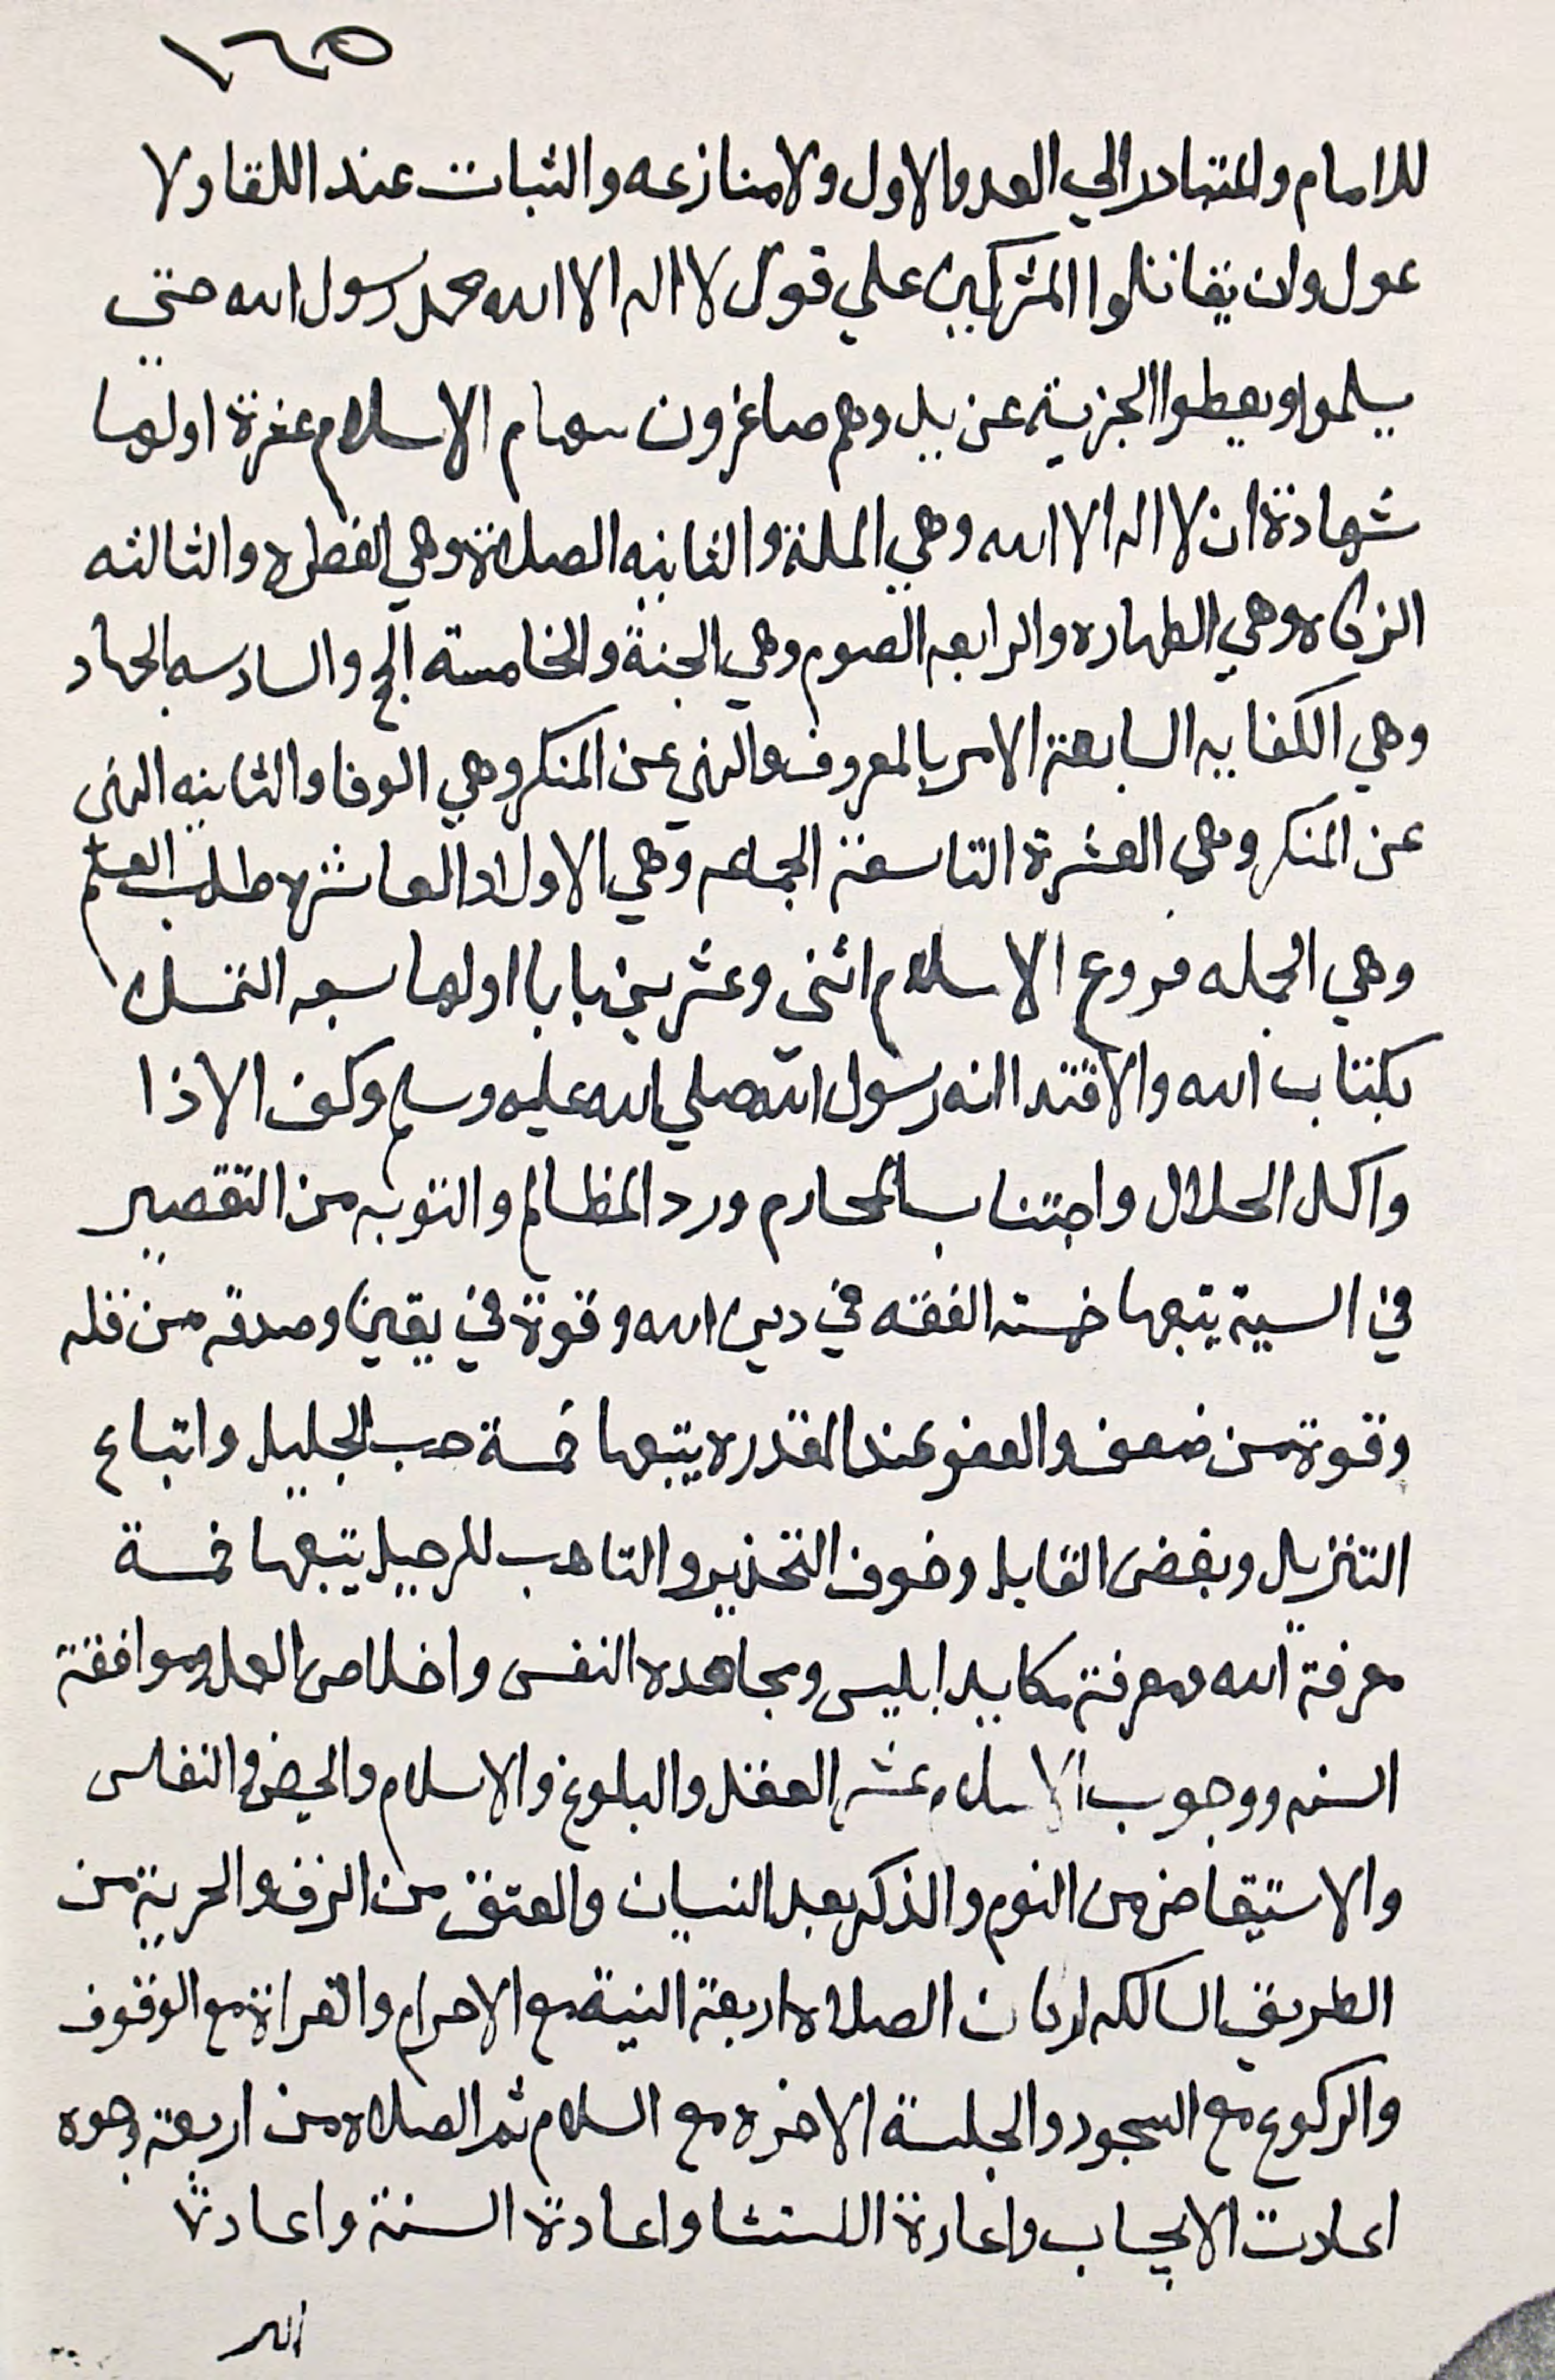 ١٦٥
للامام والمتبادر الي العدو الاول ولا منازعه والثبات عند اللقا ولا
عول وان يقاتلوا المشركين علي قول لا اله الا الله محمد رسول الله حتي
يسلموا ويعطوا الجزية عن يد وهم صاغرون سهام الاسلام عشرة اولها
شهادة ان لا اله الا الله وهي الملة والثانيه الصلاة وهي الفطره والثالثه
الزكاه وهي الطهاره والرابعه الصوم وهي الجنة والخامسة الحج والسادسه الجهاد
وهي الكفايه السابعة الامر بالمعروف والنهي عن المنكر وهي الوفا والثانيه النهى
عن المنكر وهي العشرة التاسعة الجماعه وهي الاولاد العاشره طلب العلم
وهي الجمله فروع الاسلام اثني وعشرين بابا اولها سبعه التمسك
بكتاب الله والاقتدا انه رسول الله صلي الله عليه وسلم وكف الاذا
واكل الحلال واجتناب المحارم ورد المظالم والتوبه من التقصير
في السية يتبعها خمسة الفقه في دين الله وقوة في يقين وصدقه من قله
وقوة من ضعف والعفو عند المقدره يتبعها خمسة حب الجليل واتباع
التنزيل وبغض القايل وخوف التحذير والتاهب للرحيل يتبعها خمسة
معرفة الله ومعرفة مكايد ابليس ومجاهده النفس واخلاص العمل وموافقة
السنه ووجوب الاسلام عشر العقل والبلوغ والاسلام والحيض والنفاس
والاستيقاض من النوم والذكر بعد النسيان والعتق من الرق والحرية من
الطريق السالكه اركان الصلاه اربعة النية مع الاحرام والقراة مع الوقوف
والركوع مع السجود والجلسة الاخره مع السلام ثم الصلاه من اربعة وجوه
اعادت الايجاب واعادة الاستثنا واعادة السنة واعادة